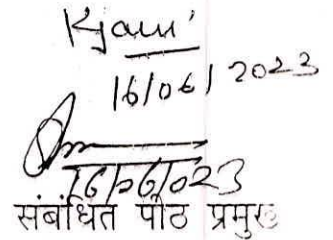 16/06/2023
16/06/023
संबंधित पीठ प्रमुख